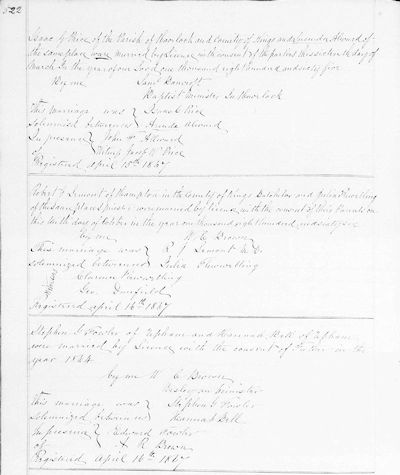 522
Isaac G Price of the Parish of Havelock and County of Kings and Lucinda Alward of
the same place were married by License with consent of the parties this sixteenth day of
March In the year of our Lord one thousand eight hundred and sixty five
By me Saml Bancroft
Baptist Minister In Havelock
This marriage was } Isaac G Price
Solemnized between } Alward
In presence } John W Alward
of } Price
Registered April 15th 1867
Robert J Lemont of Hampton in the County of Kings Batchelor and Julia Flewelling
of the same place Spinster were married by License with the consent of their Parents on
this tenth day of October in the year one thousand eight hundred and sixty six
by me W C Brown
This marriage was } R J Lemont
Solemnized between } Julia Flewwelling
Clarence Flewwelling
Geo.
Registered April 16th 1867
Stephen G Fowler of Upham and Hannah Bell of Upham
were married by License with the consent of in the
year 1864
by me W C Brown
Wesleyan Minister
This marriage was } Stephen G Fowler
Solemnized between } Hannah Bell
In presence } Edward Fowler
of } A R Brown
Registered April 16th 1867